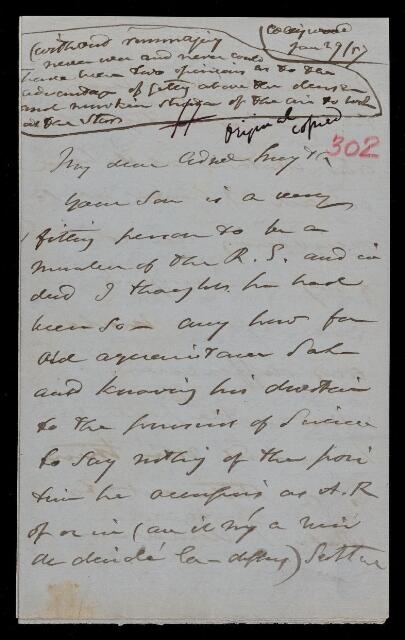 Collingwood
Jan 29/57
(without rummaging
never was and never could
have been two opinions as to the
advantage of getting above the denser
and murkier of the air to look
at the stars
Original copied
302
My dear Admiral Smyth
Your Son is a very
fitting person to be a
member of the R. S. and in
deed I thought he had
been so – any how for
old acquaintance sake
and knowing his devotion
to the pursuit of Science
to say nothing of the posi
tion he occupies as A. R
of or in (car il n'y a rien
de decidé la-dessus) Scotland